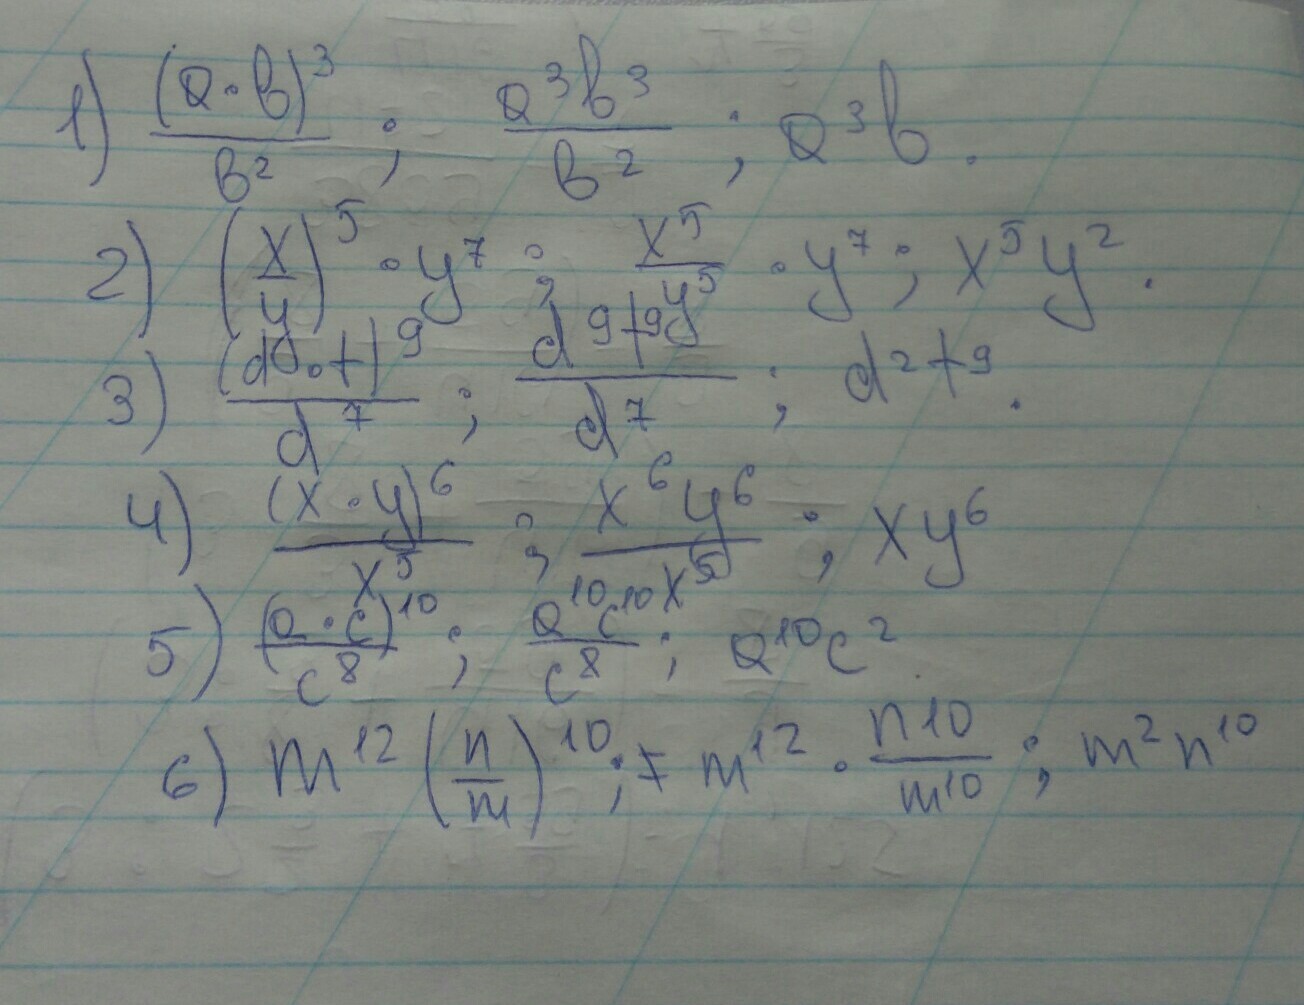 1) (a·b)³/b² ; a³b³/b² ; a³b.
2) (x/y)⁵ · y⁷ ; x⁵/y⁵ · y⁷ ; x⁵y².
3) (d·t)⁹/d⁷ ; d⁹t⁹/d⁷ ; d²t⁹.
4) (x·y)⁶/x⁵ ; x⁶y⁶/x⁵ ; xy⁶
5) (a·c)¹⁰/c⁸ ; a¹⁰c¹⁰/c⁸ ; a¹⁰c².
6) m¹²(n/m)¹⁰ ; = m¹² · n10/m¹⁰ ; m²n¹⁰